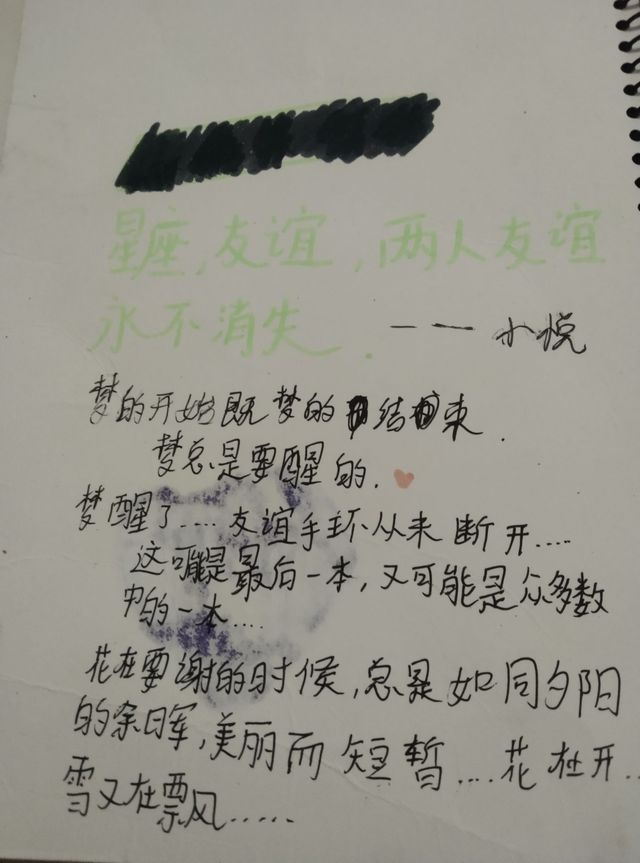 星座,友谊,两人友谊
永不消失. ——小悦
梦的开始既梦的结束.
梦总是要醒的.
梦醒了....友谊手环从来断开....
这可能是最后一本,又可能是众多数
中的一本....
花在要谢的时候,总是如同夕阳
的余日军,美丽而短暂....花在开...
雪又在飘风......